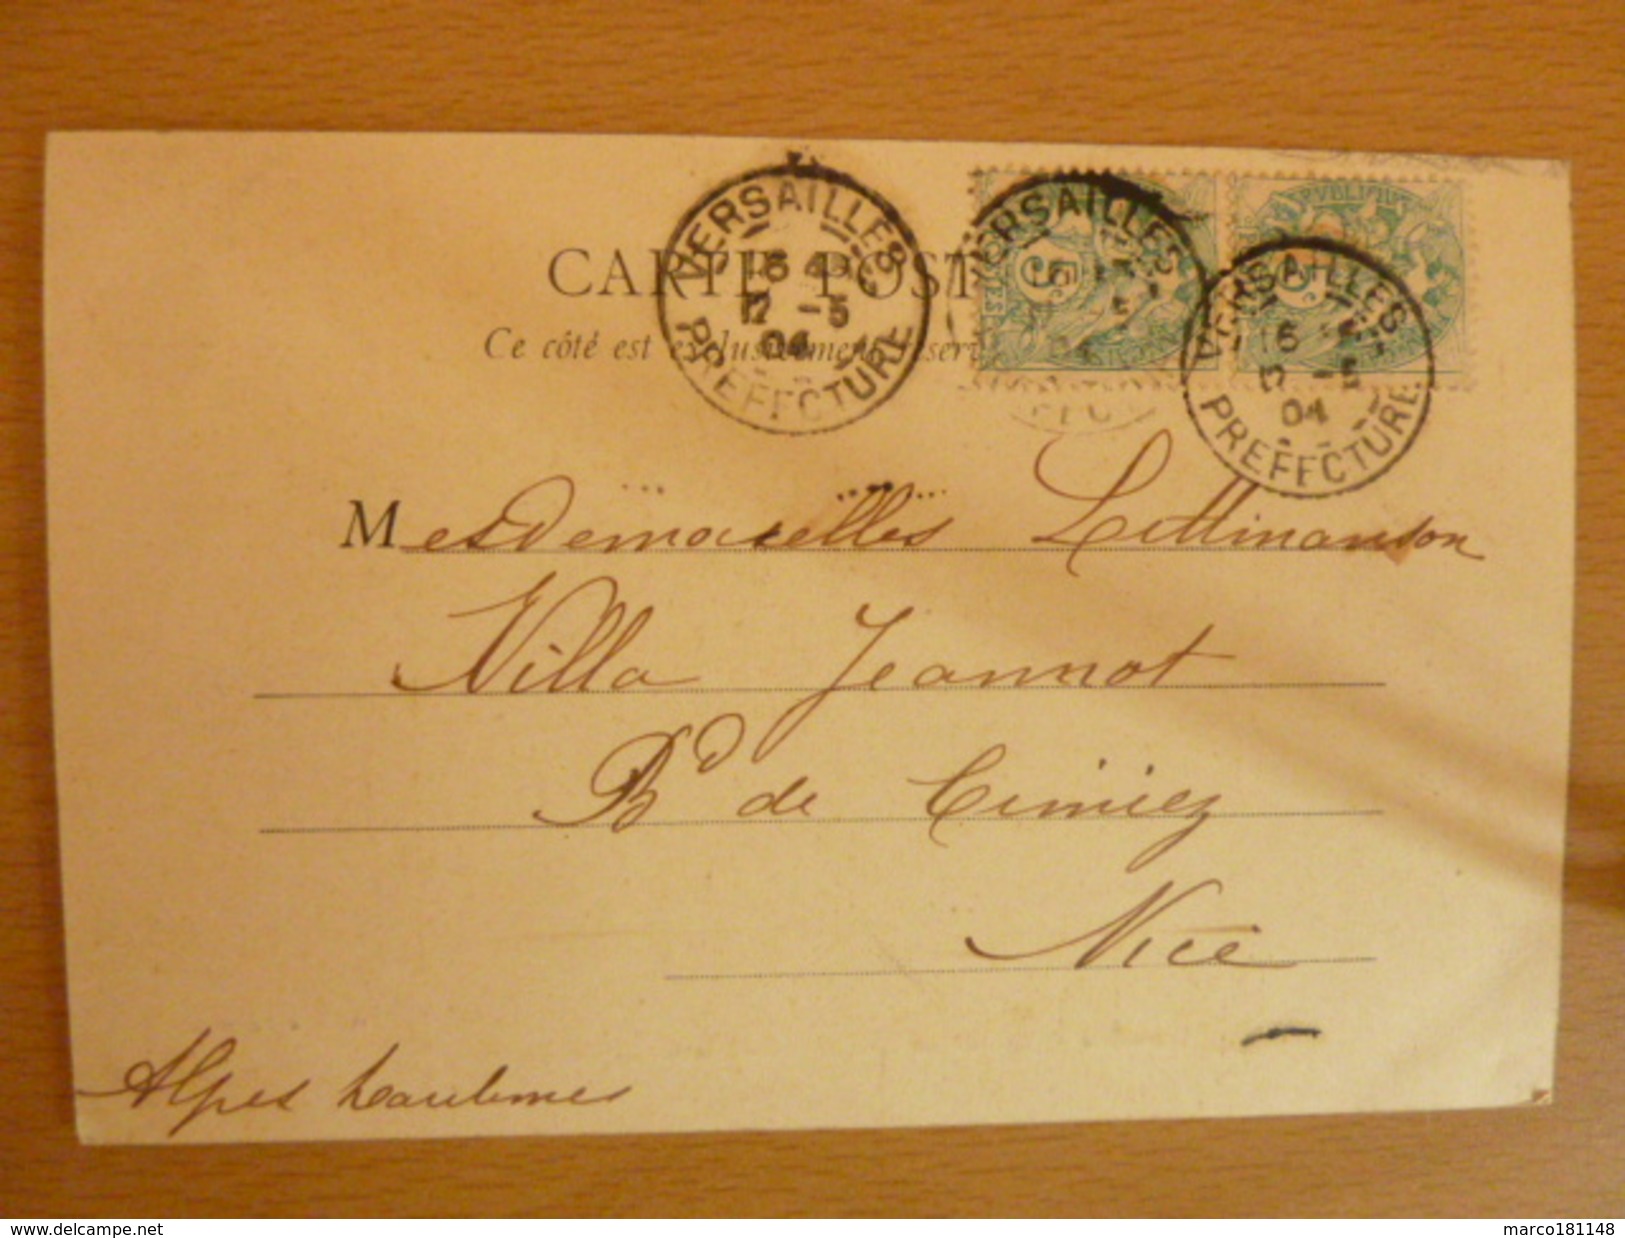 VERSAILLES
16
12 -5
04
PREFECTURE
VERSAILLES
VERSAILLES
16
04
PREFECTURE
CARTE POST
Ce côté est exclusivement réserv
Mesdemoiselles
Villa Jeannot
Bd de Cimiez
Nice
Alpes Maritimes
delcampe.net
marco181148